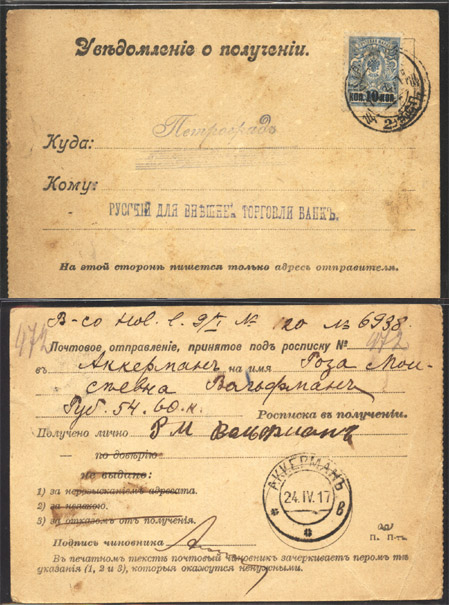 Увѣдомленіе о полученіи.
КОП. 10 КОП.
Куда: Петроградъ
Кому:
РУССКІЙ ДЛЯ ВНѢШНЕЙ ТОРГОВЛИ БАНКЪ.
На этой сторонѣ пишется только адресъ отправителя.
№ 20 № 6938.
472
Почтовое отправленіе, принятое подъ росписку №
въ Аккерманъ на имя Роза Мои-
сѣевна Вольфманъ
Руб. 54. 60. к. Росписка въ полученіи.
Получено лично Р М Вольфманъ
— по довѣрію —
не выдано:
1) за нерозысканіемъ адресата.
2) за неявкою.
3) за отказомъ отъ полученія.
АККЕРМАНЪ
24 IV. 17
в
Подпись чиновника
П. П-тъ.
Въ печатномъ текстѣ почтовый чиновникъ зачеркиваетъ перомъ тѣ
указанія (1, 2 и 3), которыя окажутся ненужными.